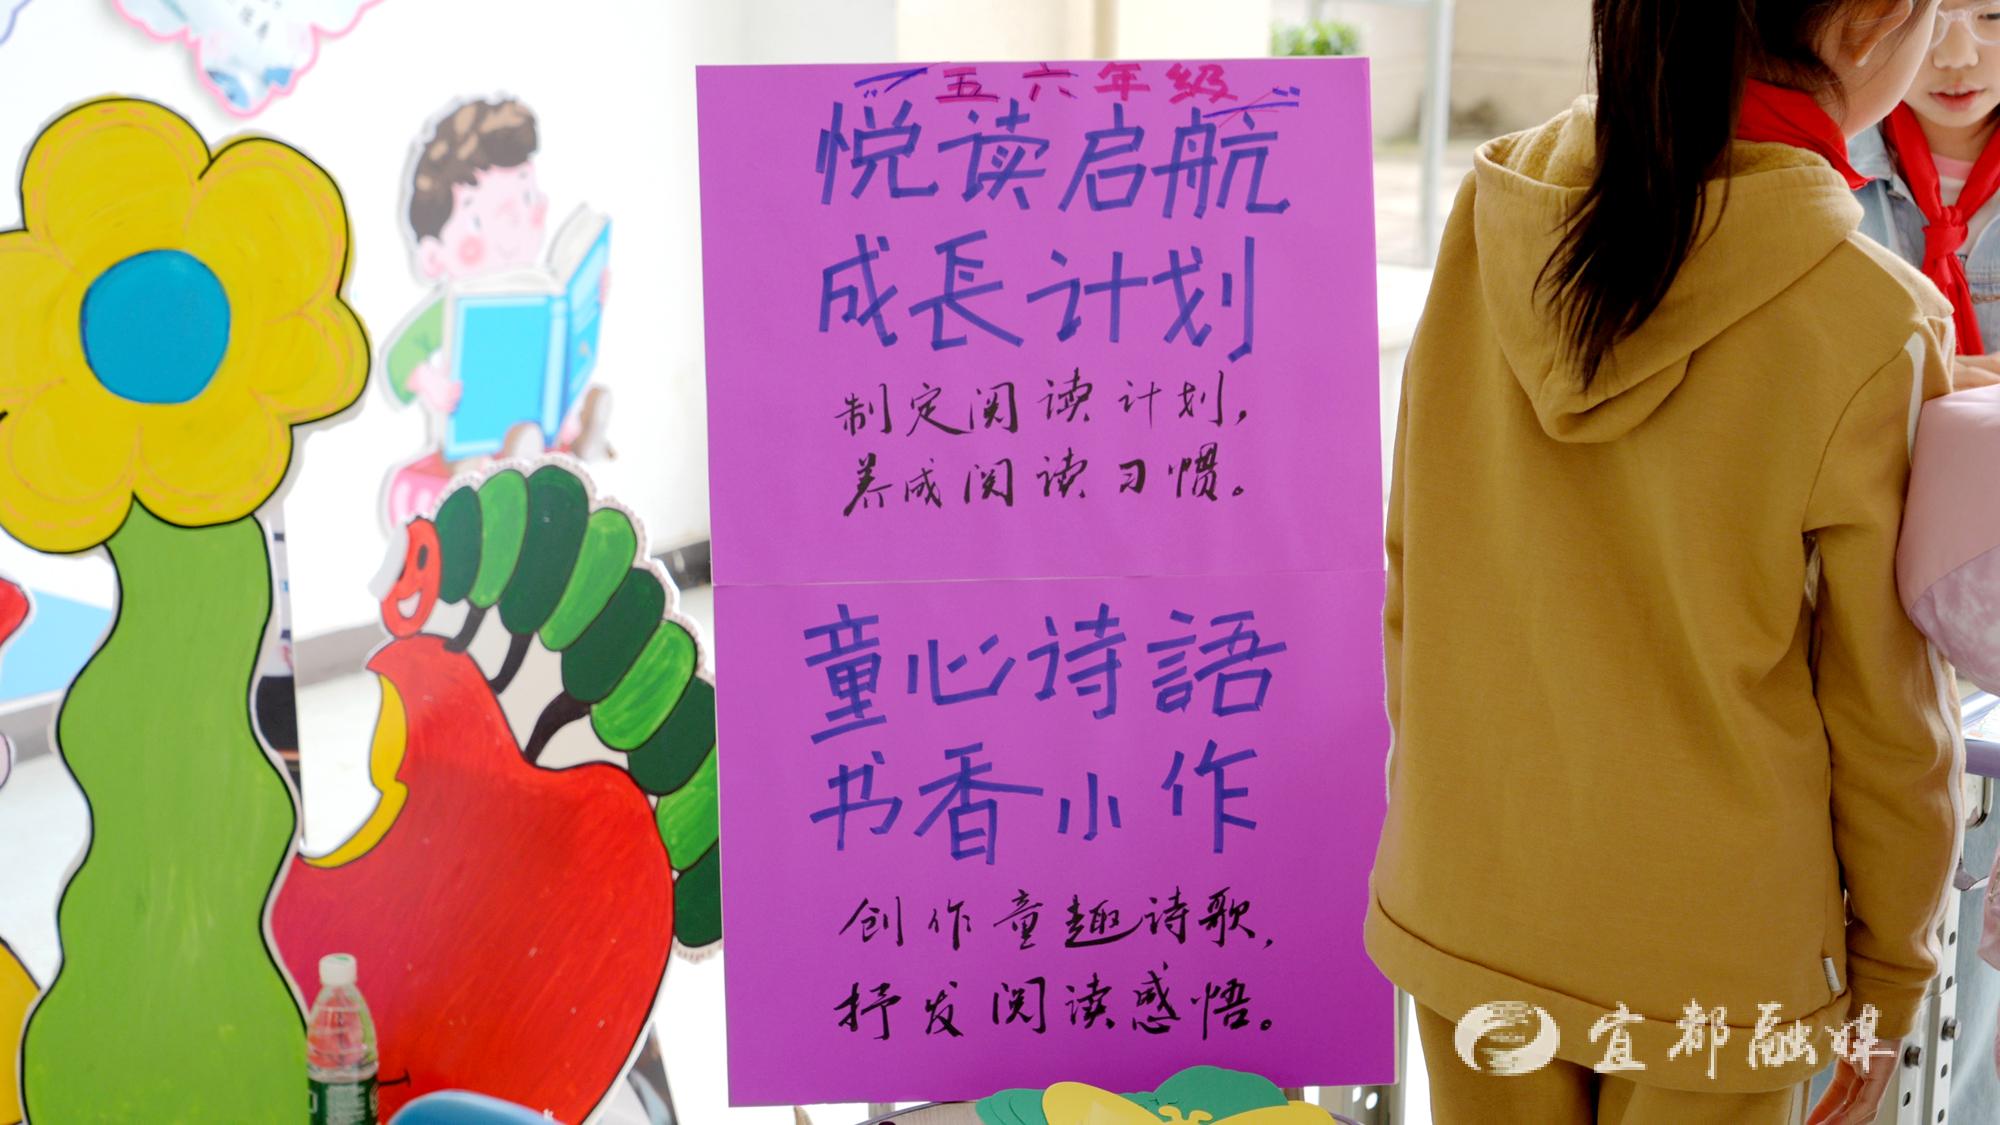 五六年级
悦读启航
成長计划
制定阅读计划,
养成阅读习惯。
童心诗語
书香小作
创作童趣诗歌,
抒发阅读感悟。
宜都融媒